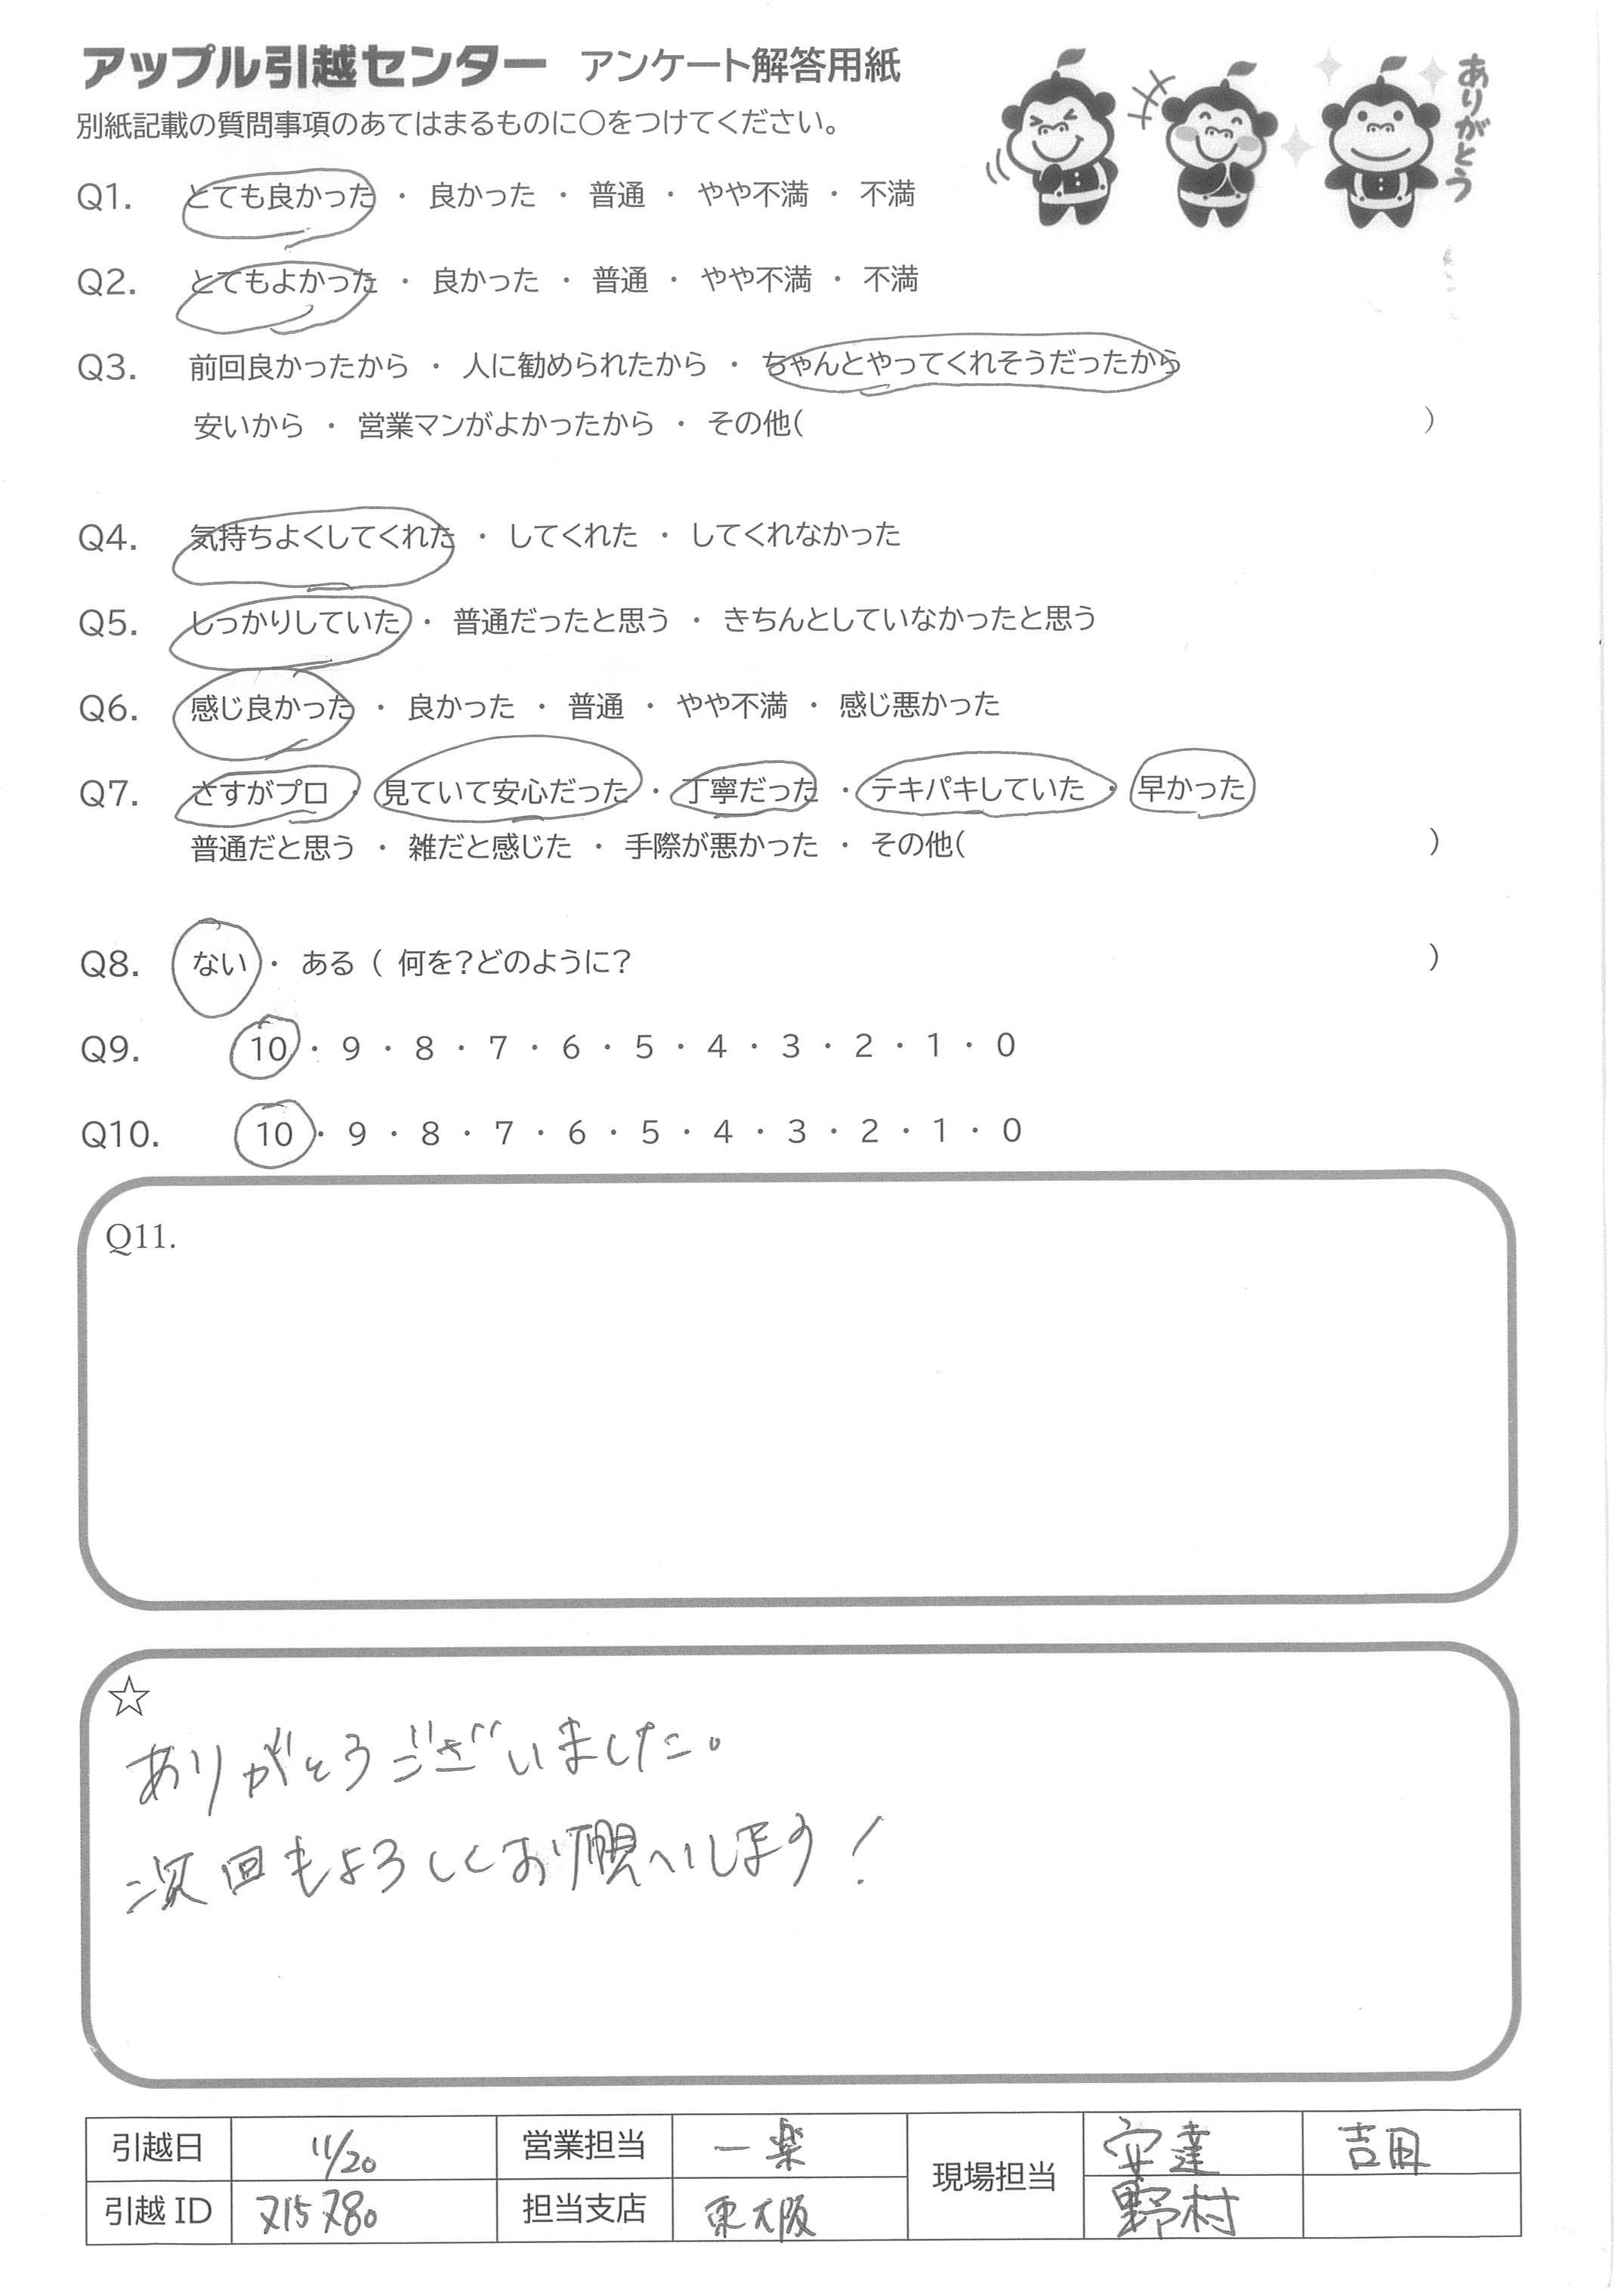 アップル引越センター アンケート解答用紙
ありがとう
別紙記載の質問事項のあてはまるものに○をつけてください。
Q1. とても良かった ・ 良かった ・ 普通 ・ やや不満 ・ 不満
Q2. とてもよかった ・ 良かった ・ 普通 ・ やや不満 ・ 不満
Q3. 前回良かったから ・ 人に勧められたから ・ ちゃんとやってくれそうだったから
安いから ・ 営業マンがよかったから ・ その他( )
Q4. 気持ちよくしてくれた ・ してくれた ・ してくれなかった
Q5. しっかりしていた ・ 普通だったと思う ・ きちんとしていなかったと思う
Q6. 感じ良かった ・ 良かった ・ 普通 ・ やや不満 ・ 感じ悪かった
Q7. さすがプロ ・ 見ていて安心だった ・ 丁寧だった ・ テキパキしていた ・ 早かった
普通だと思う ・ 雑だと感じた ・ 手際が悪かった ・ その他( )
Q8. ない ・ ある ( 何を?どのように? )
Q9. 10 ・ 9 ・ 8 ・ 7 ・ 6 ・ 5 ・ 4 ・ 3 ・ 2 ・ 1 ・ 0
Q10. 10 ・ 9 ・ 8 ・ 7 ・ 6 ・ 5 ・ 4 ・ 3 ・ 2 ・ 1 ・ 0
Q11.
☆
ありがとうございました。
次回もよろしくお願いします!
引越日 11/20 営業担当 一楽 現場担当 安達 吉田
引越ID 担当支店 東大阪 野村